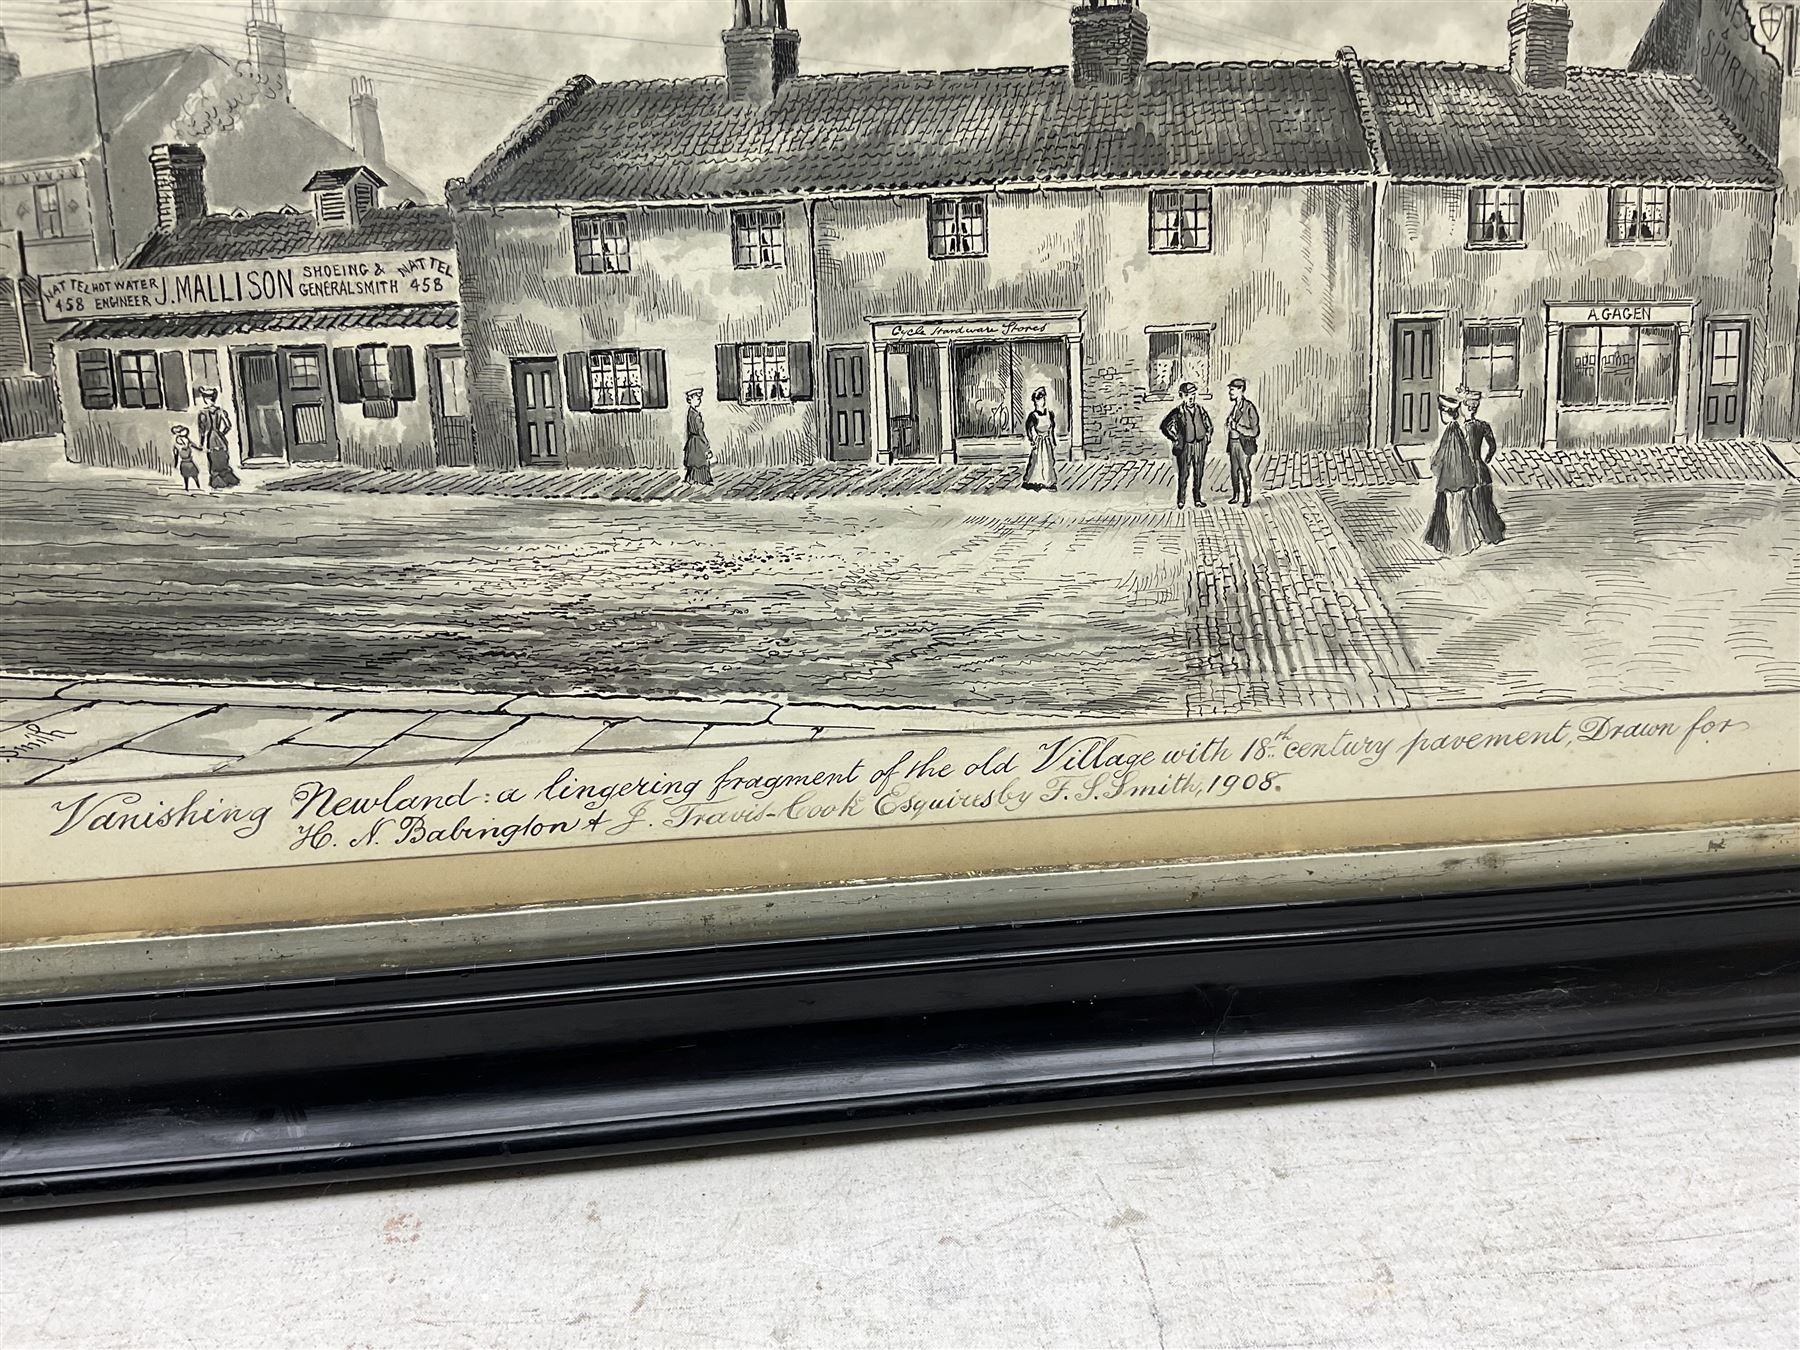 NES
&
SPIRITS
NAT TEL
458
HOT WATER
ENGINEER
J. MALLISON
SHOEING &
GENERAL SMITH
NAT TEL
458
Cycle Hardware Stores
A GAGEN
Smith
Vanishing Newland: a lingering fragment of the old Village with 18th century pavement, Drawn for
H. N. Babington & J. Travis-Cook Esquires by F. S. Smith, 1908.